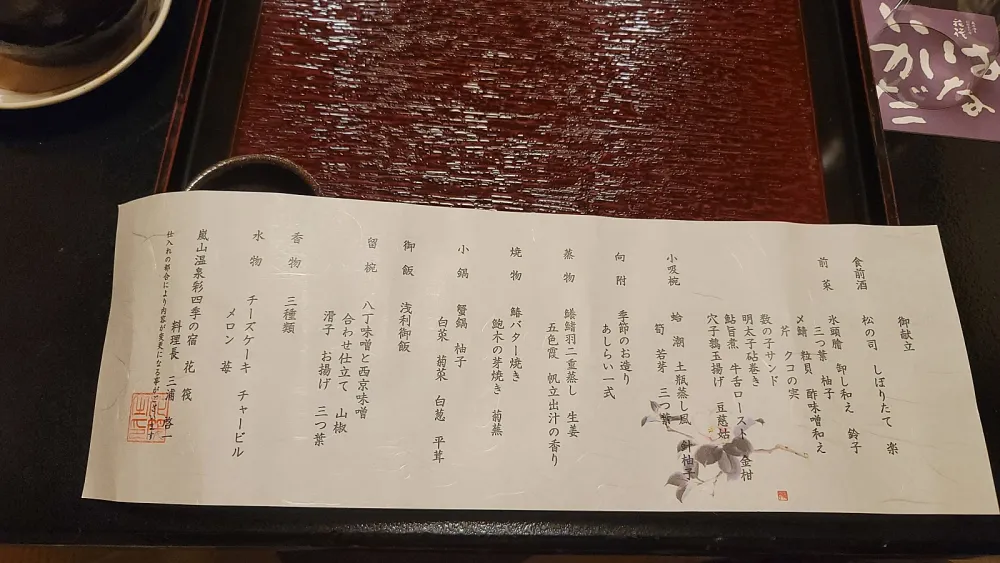 御献立
食前酒 松の司 しぼりたて 楽
前菜 氷頭膾 卸し和え 鈴子
三つ葉 柚子
〆鯖 粒貝 酢味噌和え
芹 クコの実
数の子サンド
明太子砧巻き 金柑
鮎旨煮 牛舌ロースト
穴子鶉玉揚げ 豆慈姑
小吸椀 蛤 潮 土瓶蒸し風 針柚子
筍 若芽 三つ葉
向附 季節のお造り
あしらい一式
蒸物 鱶鰭羽二重蒸し 生姜
五色霞 帆立出汁の香り
焼物 鰆バター焼き
鮑木の芽焼き 菊蕪
小鍋 蟹鍋 柚子
白菜 菊菜 白葱 平茸
御飯 浅利御飯
留椀 八丁味噌と西京味噌
合わせ仕立て 山椒
滑子 お揚げ 三つ葉
香物 三種類
水物 チーズケーキ チャービル
メロン 苺
嵐山温泉彩四季の宿 花筏
料理長 三浦 啓一
仕入れの都合により内容が変更になる事が